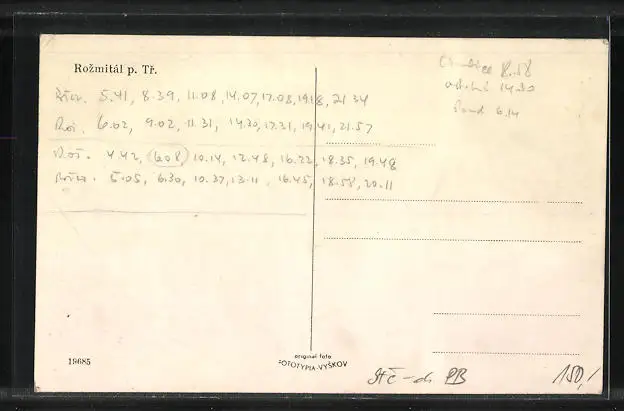 Rožmitál p. Tř.
5.41, 8.39, 11.08, 14.07, 17.08, 19.18, 21.34
Rož. 6.02, 9.02, 11.31, 14.30, 17.31, 19.41, 21.57
Rož. 4.42, 6.08, 10.14, 12.48, 16.22, 18.35, 19.48
5.05, 6.30, 10.37, 13.11, 16.45, 18.58, 20.11
8.58
14.30
6.14
19685
original foto
FOTOTYPIA-VYŠKOV
PB
150,/